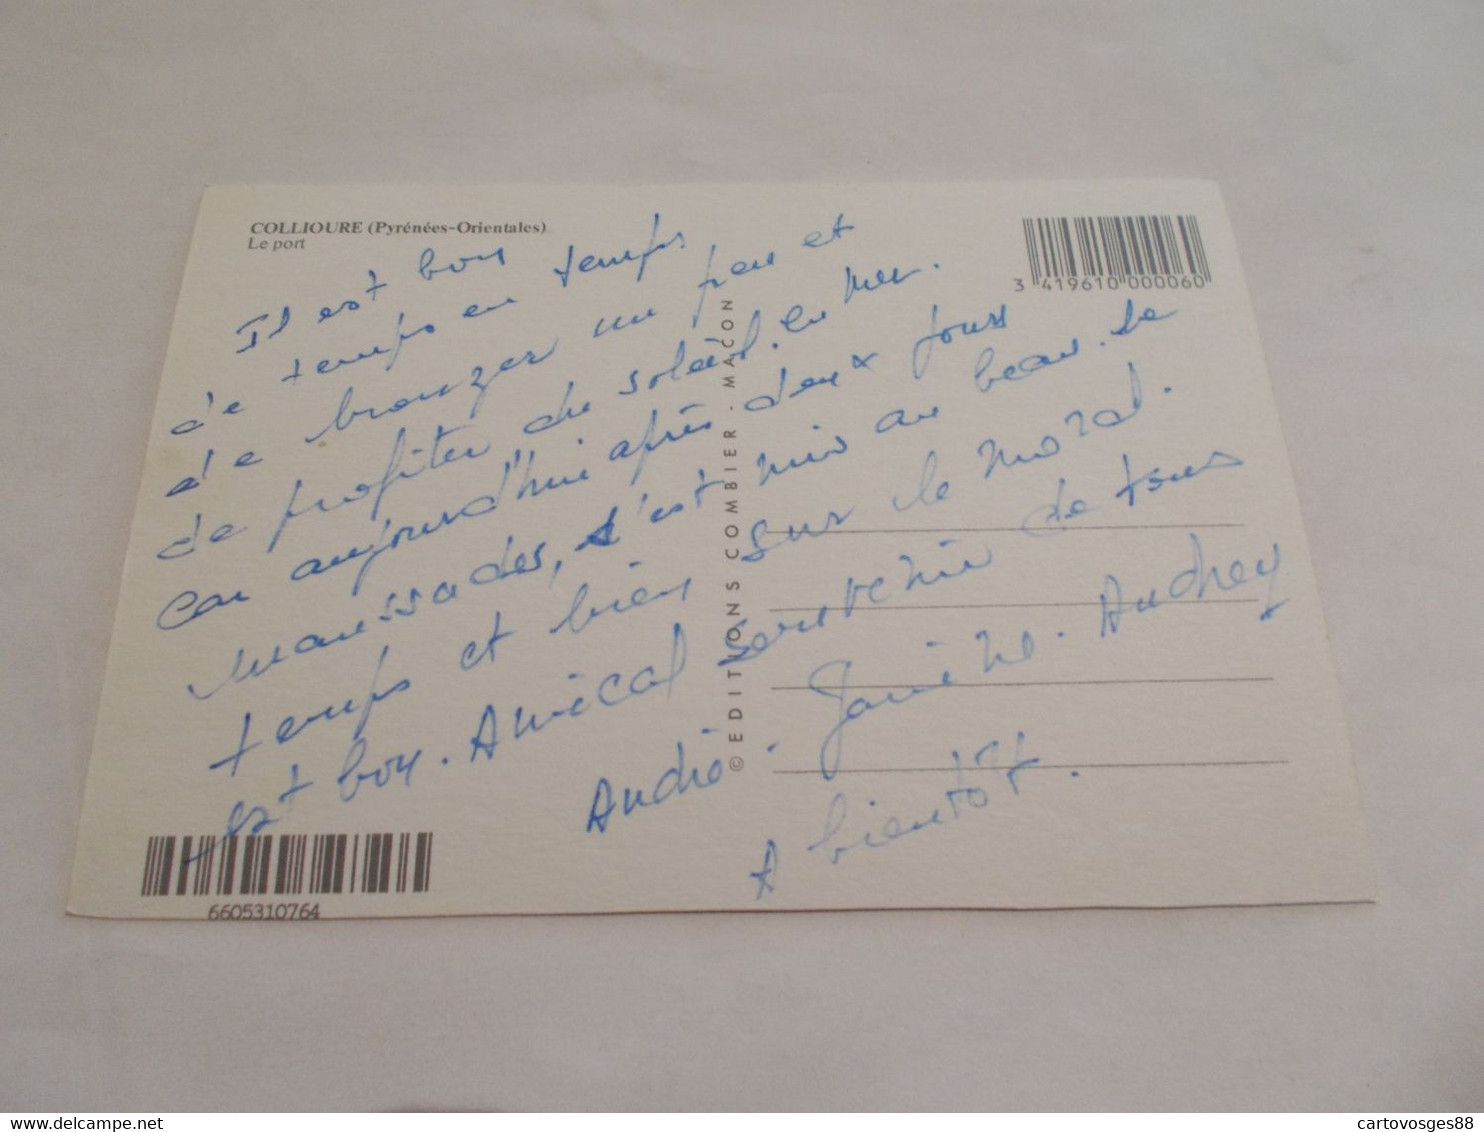 COLLIOURE (Pyrénées-Orientales)
Le port
3 419610 000060
Il est bon
de temps en temps
de bronzer un peu et
de profiter du soleil. La mer.
Car aujourd'hui après deux jours
maussades, s'est mis au beau. Le
temps et bien sur le moral.
est bon. Amical souvenir de tous
André. Janine. Audrey
A bientôt.
© EDITIONS COMBIER - MACON
6605310764
cartovosges88